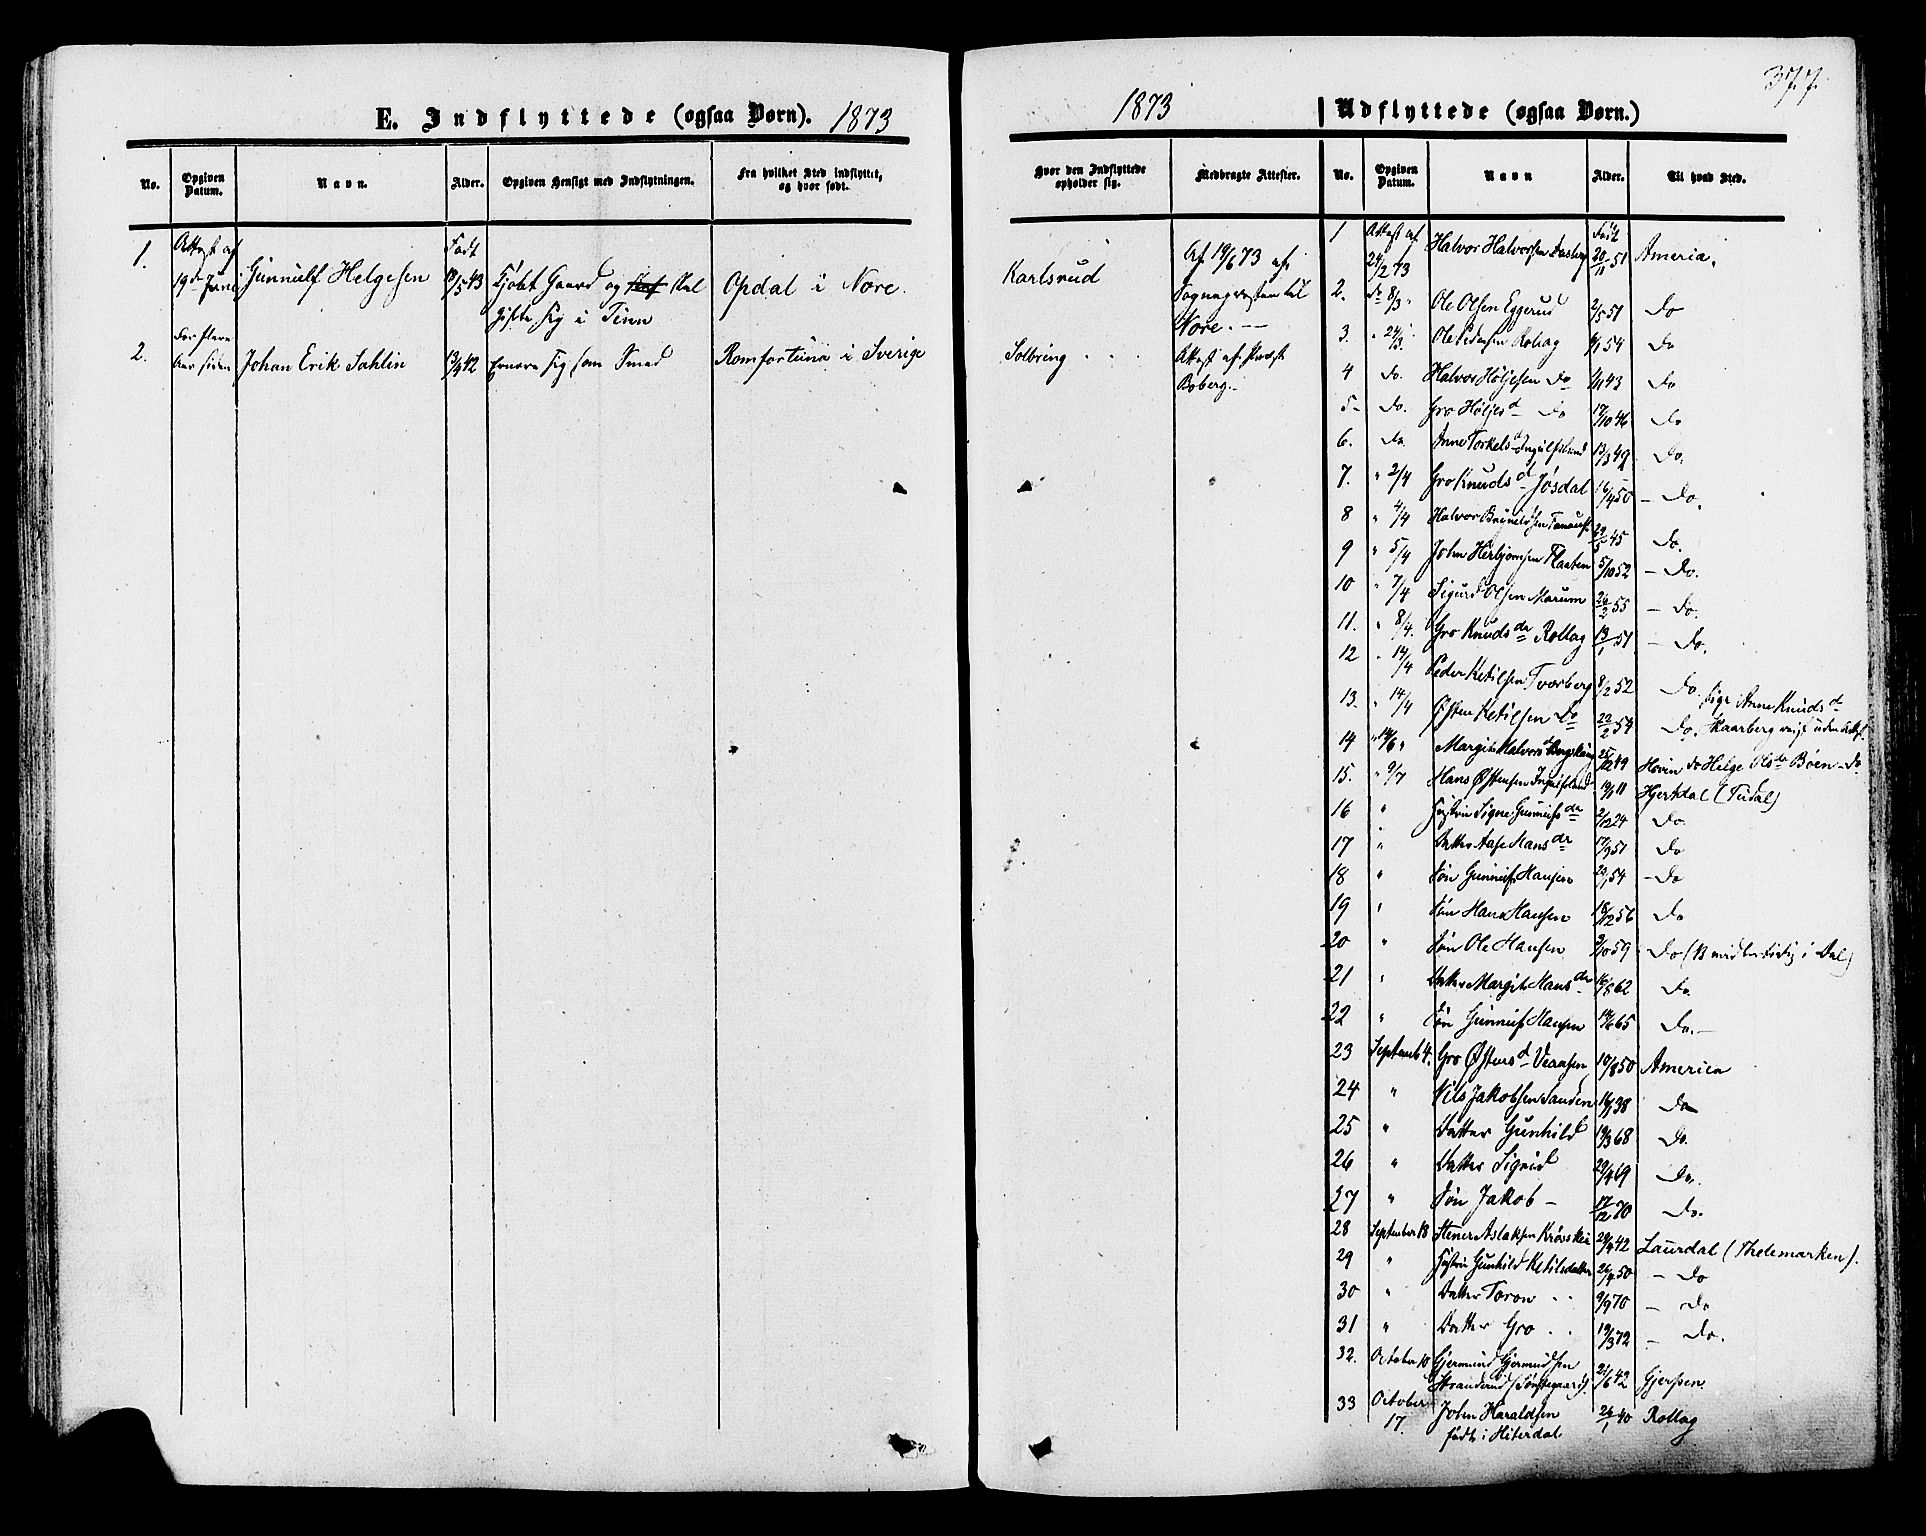 E. Indflyttede (ogsaa Børn). 1873
No. Opgiven Datum. Navn. Alder. Opgiven Hensigt med Indflytningen. Fra hvilket Sted indflyttet, og hvor født.
1. Attest af 19de Juni Gunnulf Helgesen Født 13/5 43 Kjøbt Gaard og skal gifte sig i Tinn Opdal i Nore.
2. For flere Aar siden Johan Erik Sahlin 13/4 42 Ernære sig som Smed Romfortuna i Sverige
377.
1873 Udflyttede (ogsaa Børn.)
Hvor den Indflyttede opholder sig. Medbragte Attester. No. Opgiven Datum. Navn Alder. Til hvad Sted.
Karlsrud Af 19/6 73 af Sognepresten til Nore.
Solbring Attest af Præst Boberg.
1 Attest af 24/2 73 Halvor Halvorsen Født 20/11 51 Ameria.
2. do 8/3 Ole Olsen Eggerud 2/5 51 Do
3. " 24/3 Ole Pedersen Rollag 54 Do
4 do. Halvor Høljesen Do 43 Do
5 do. Gro Høljesd Do 17/10 46 Do
6. do Anne Torkelsd Ingulfsland 13/3 49 Do.
7. " 2/4 Gro Knudsd Jøsdal 16/4 50 Do.
8 " 4/4 Halvor 29/5 45 Do.
9 " 5/4 John Herbjornsen Flaaten 5/10 52 Do.
10 " 7/4 Sigurd Olsen Marum 26/2 55 Do.
11. " 8/4. Gro Knudsdr Rollag 13/1 51 Do.
12 " 14/4 Peder Ketilsen Tvorberg 8/2 52 Do. Pige Anne Knudsd
13. " 14/4 Østen Ketilsen Do 22/2 54 Do. Kaarberg reist uden Attest
14 " 14/6 " Margit Halvorsd 25/12 49 Hovin do Helge Olsdr Bøen do
15. " 9/7 Hans Østensen Ingulfsland 11 Hjertdal (Tudal)
16 " Hustru Signe Gunnulfsdr 2/12 24 Do
17 " Datter Aase Hansdr 17/9 51 Do
18 " Søn Gunnulf Hansen 54 Do
19 " Søn Hans Hansen 18/12 56 Do
20 " Søn Ole Hansen 3/10 59 Do (B midlertidig i Dal)
21 " Datter Margit Hansdr 16/8 62 Do.
22 " Søn Gunnulf Hansen 14/6 65 Do.
23 Septemb 4. Gro Østensd 10/8 50 America
24 " Nils Jakobsen Sanden 38 Do
25 " Datter Gunhild 19/3 68 Do.
26 " Datter Sigrid 29/4 69 Do.
27 " Søn Jakob 17/12 70 Do.
28 September 18 Stener Aslaksen 29/4 42 Laurdal (Thelemarken).
29 " Hustru Gunhild Ketilsdatter 26/4 50 Do
30 " Datter Toron 9/9 70 Do
31 " Datter Gro 19/3 72 Do.
32. October 10 Gjermund Gjermundsen Stranderud (Sønstegaard). 21/6 42 Gjerpen.
33 October 17. John Haraldsen født i Hiterdal 26/1 40 Rollag